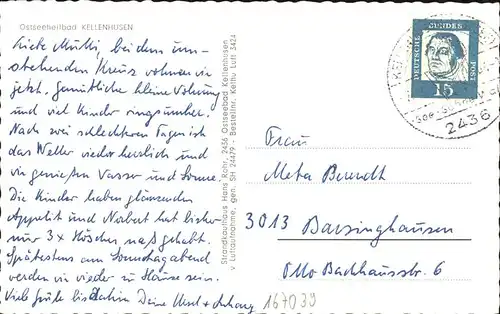 Ostseeheilbad KELLENHUSEN
Liebe Mutti, bei dem um-
stehenden Kreuz wohnen wir
jetzt. Gemütliche kleine Wohnung
und viel Kinder ringsumher.
Nach zwei schlechteren Tagen ist
das Wetter wieder herrlich und
wir genießen Wasser und Sonne.
Die Kinder haben glänzenden
Appetit und Norbert hat bisher
nur 3x Höschen naß gehabt.
Spätestens am Sonntagabend
werden wir wieder zu Hause sein.
Viele Grüße bis dahin Deine Ursel + Anhang
Strandkaufhaus Hans Rohr, 2436 Ostseebad Kellenhusen
v Luftaufnahme, gen. SH 24479 - Bestellnr. Kelhu Luft 3424
DEUTSCHE BUNDES POST
15
2436
Frau
Meta Berendt
3013 Barsinghausen
Otto Backhausstr. 6
167039